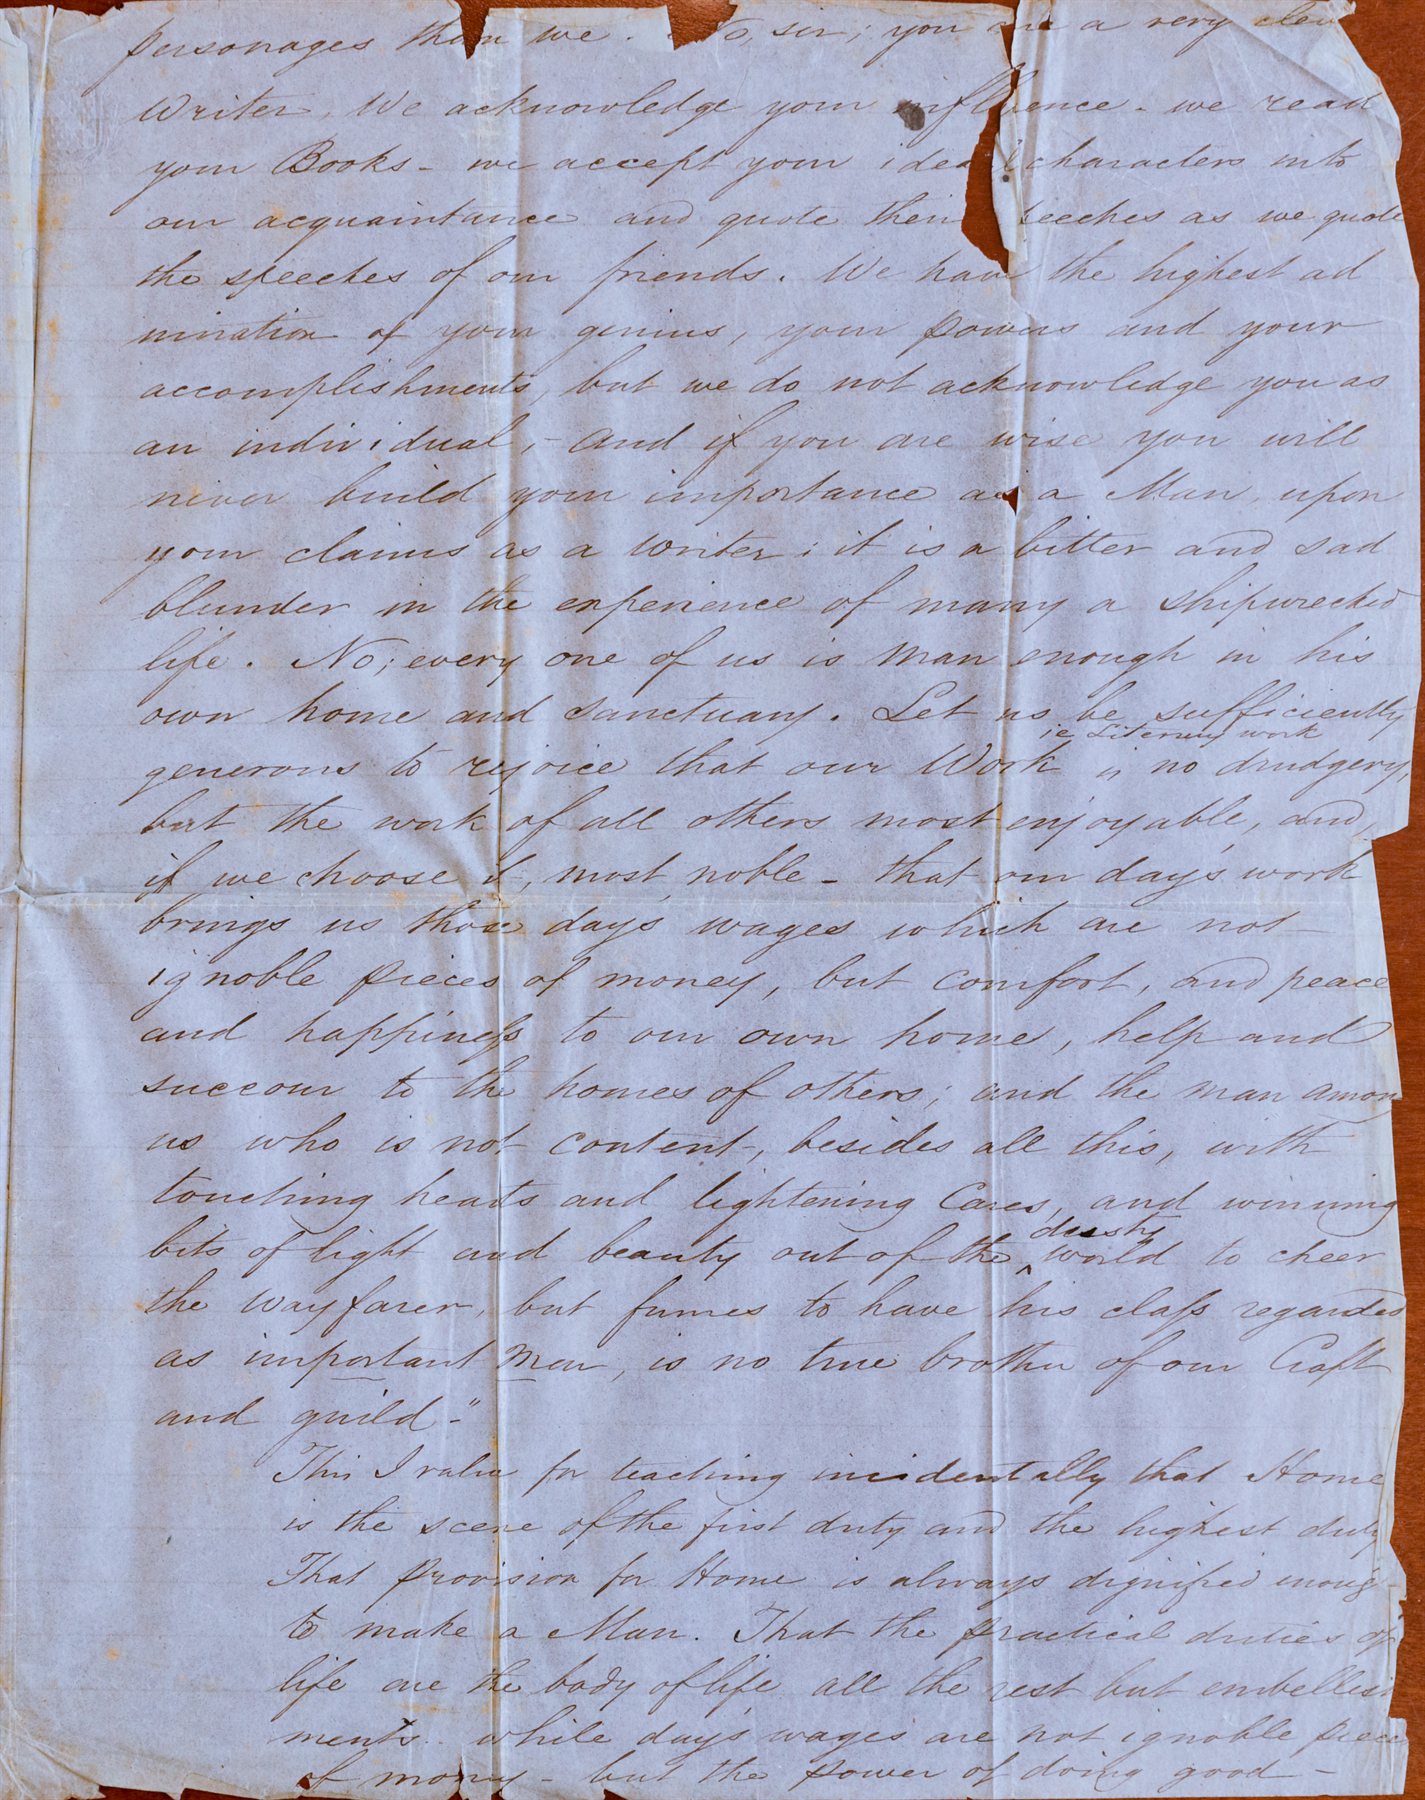 personages than we. No, sir; you are a very clev
Writer. We acknowledge your influence - we read
your Books - we accept your ideal characters into
our acquaintance and quote their eeches as we quote
the speeches of our friends. We have the highest ad
miration of your genius, your powers and your
accomplishments, but we do not acknowledge you as
an individual, - and if you are wise you will
never build your importance as a Man, upon
your claims as a writer; it is a bitter and sad
blunder in the experience of many a shipwrecked
life. No; every one of us is man enough in his
own home and sanctuary. Let us be sufficiently
ie Literary work
generous to rejoice that our Work is no drudgery,
but the work of all others most enjoyable, and,
if we choose it, most noble - that our day's work
brings us those day's wages which are not
ignoble pieces of money, but comfort, and peace
and happiness to our own home, help and
succour to the homes of others; and the man amon
us who is not content, besides all this, with
touching hearts and lightening Cares, and winning
dusty
bits of light and beauty out of the ^ world to cheer
the wayfarer, but fumes to have his class regarded
as important Men, is no true brother of our Craft
and guild -"
This I value for teaching incidentally that Home
is the scene of the first duty and the highest duty
That provision for Home is always dignified enoug
to make a Man. That the practical duties of
life are the body of life all the rest but embellish
ments. while day's wages are not ignoble piece
of money - but the power of doing good -